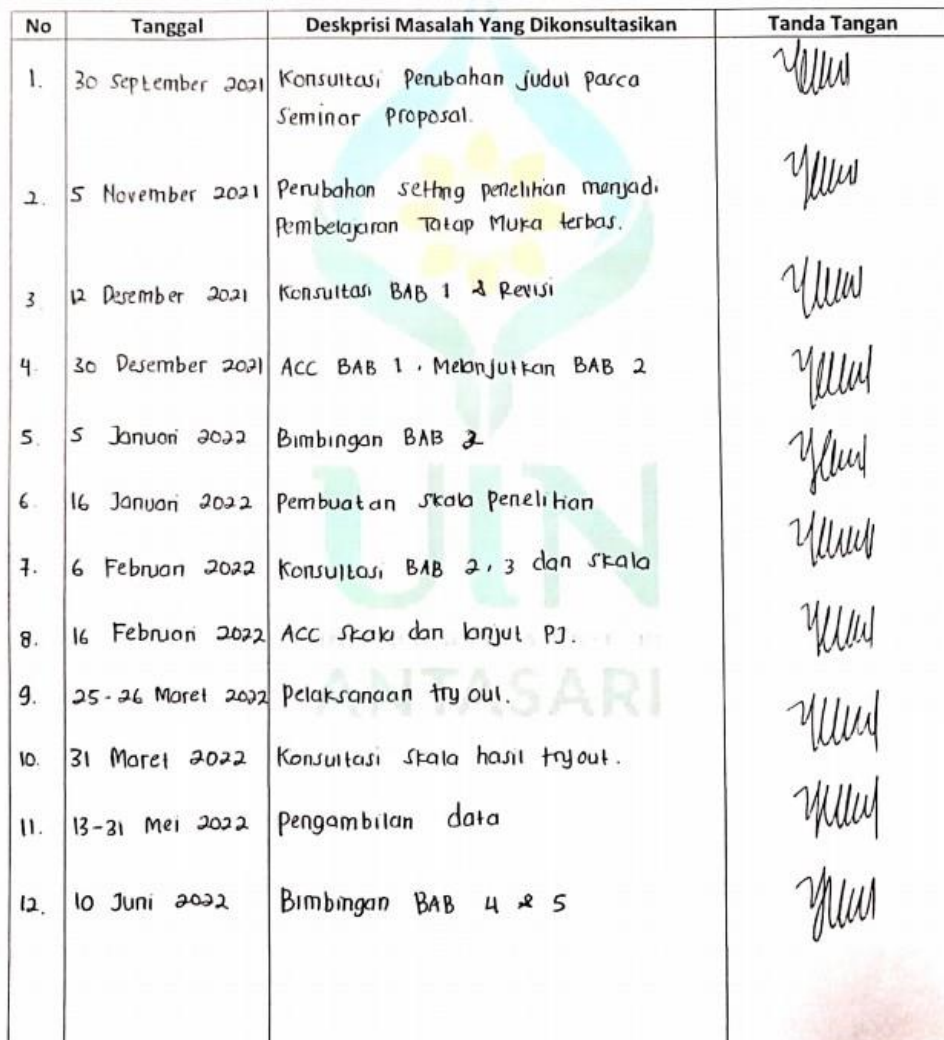 No Tanggal Deskprisi Masalah Yang Dikonsultasikan Tanda Tangan
1. 30 September 2021 Konsultasi Perubahan judul pasca
Seminar Proposal.
2. 5 November 2021 Perubahan setting penelitian menjadi
Pembelajaran Tatap Muka terbas.
3 12 Desember 2021 Konsultasi BAB 1 & Revisi
4. 30 Desember 2021 ACC BAB 1, Melanjutkan BAB 2
5. 5 Januari 2022 Bimbingan BAB
6. 16 Januari 2022 Pembuatan skala penelitian
7. 6 Februari 2022 Konsultasi BAB 2, 3 dan skala
8. 16 Februari 2022 ACC skala dan lanjut PJ.
9. 25-26 Maret 2022 Pelaksanaan try out.
10. 31 Maret 2022 Konsultasi skala hasil tryout.
11. 13-31 Mei 2022 Pengambilan data
12. 10 Juni 2022 Bimbingan BAB 4 & 5
UIN
ANTASARI